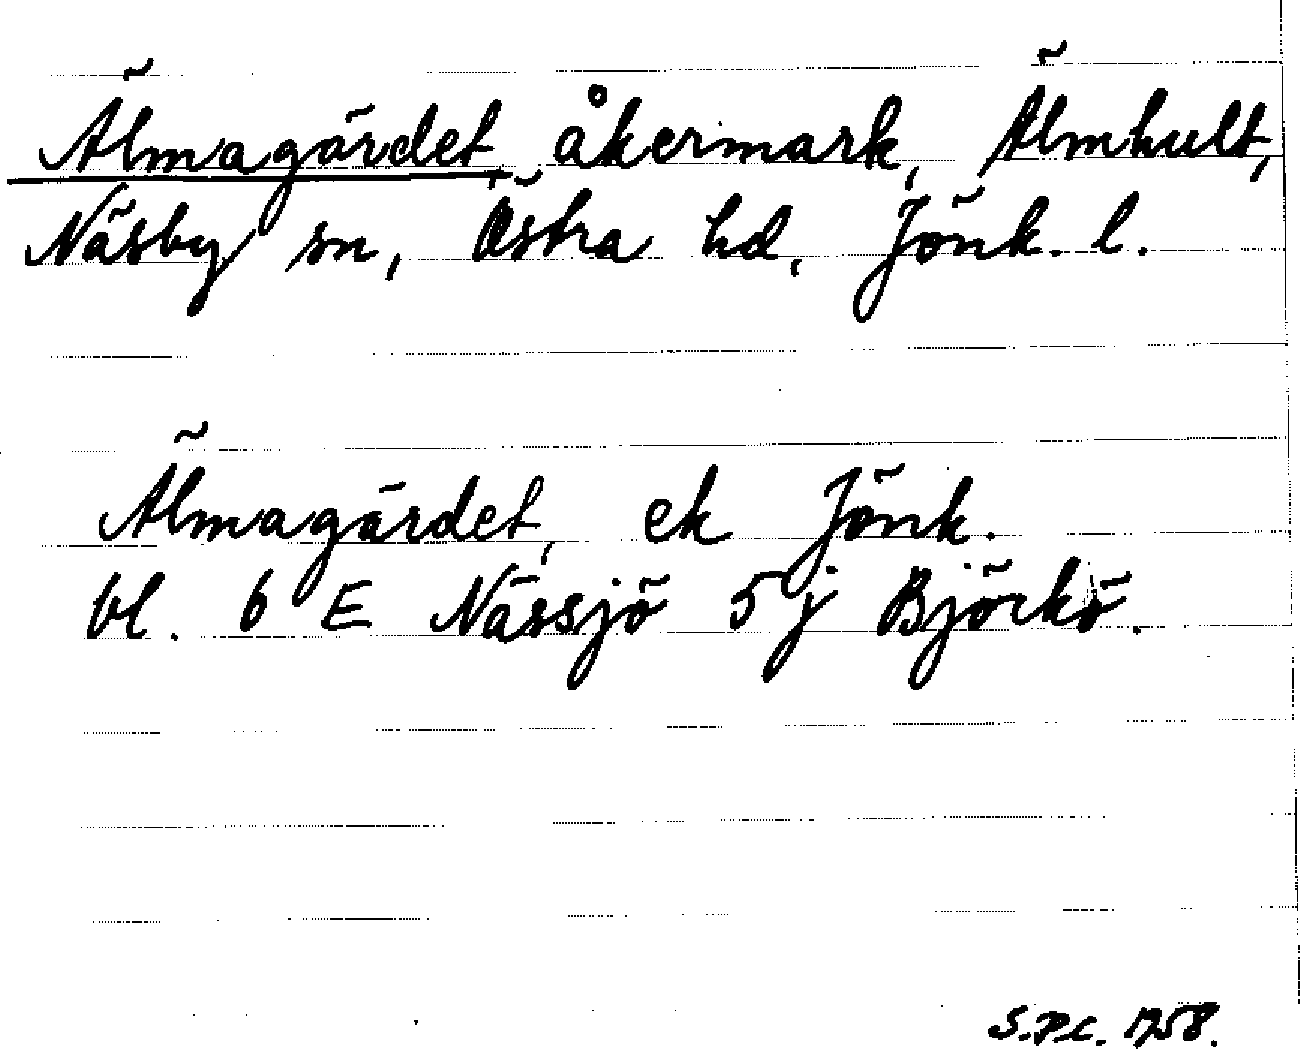 Älmagärdet, åkermark, Älmhult,
Näsby sn, Östra hd, Jönk. l.
Älmagärdet, ek Jönk.
bl. 6 E Nässjö 5 j Björkö.
S.P.C. 1958.